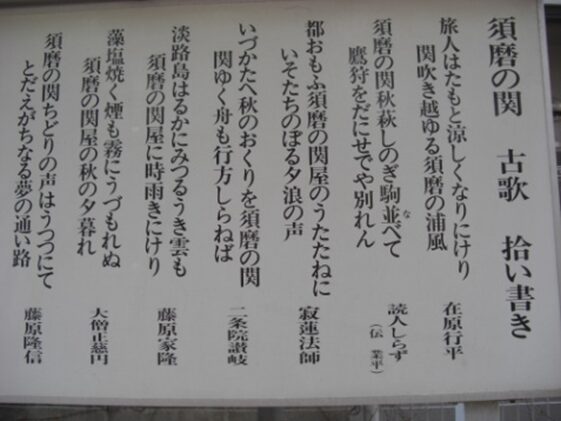 須磨の関　古歌　拾い書き
旅人はたもと涼しくなりにけり
関吹き越ゆる須磨の浦風
在原行平
須磨の関秋萩しのぎ駒並べて
な
鷹狩をだにせでや別れん
読人しらず
（伝　業平）
都おもふ須磨の関屋のうたたねに
いそたちのぼる夕浪の声
寂蓮法師
いづかたへ秋のおくりを須磨の関
関ゆく舟も行方しらねば
二条院讃岐
淡路島はるかにみつるうき雲も
須磨の関屋に時雨きにけり
藤原家隆
藻塩焼く煙も霧にうづもれぬ
須磨の関屋の秋の夕暮れ
大僧正慈円
須磨の関ちどりの声はうつつにて
とだえがちなる夢の通い路
藤原隆信